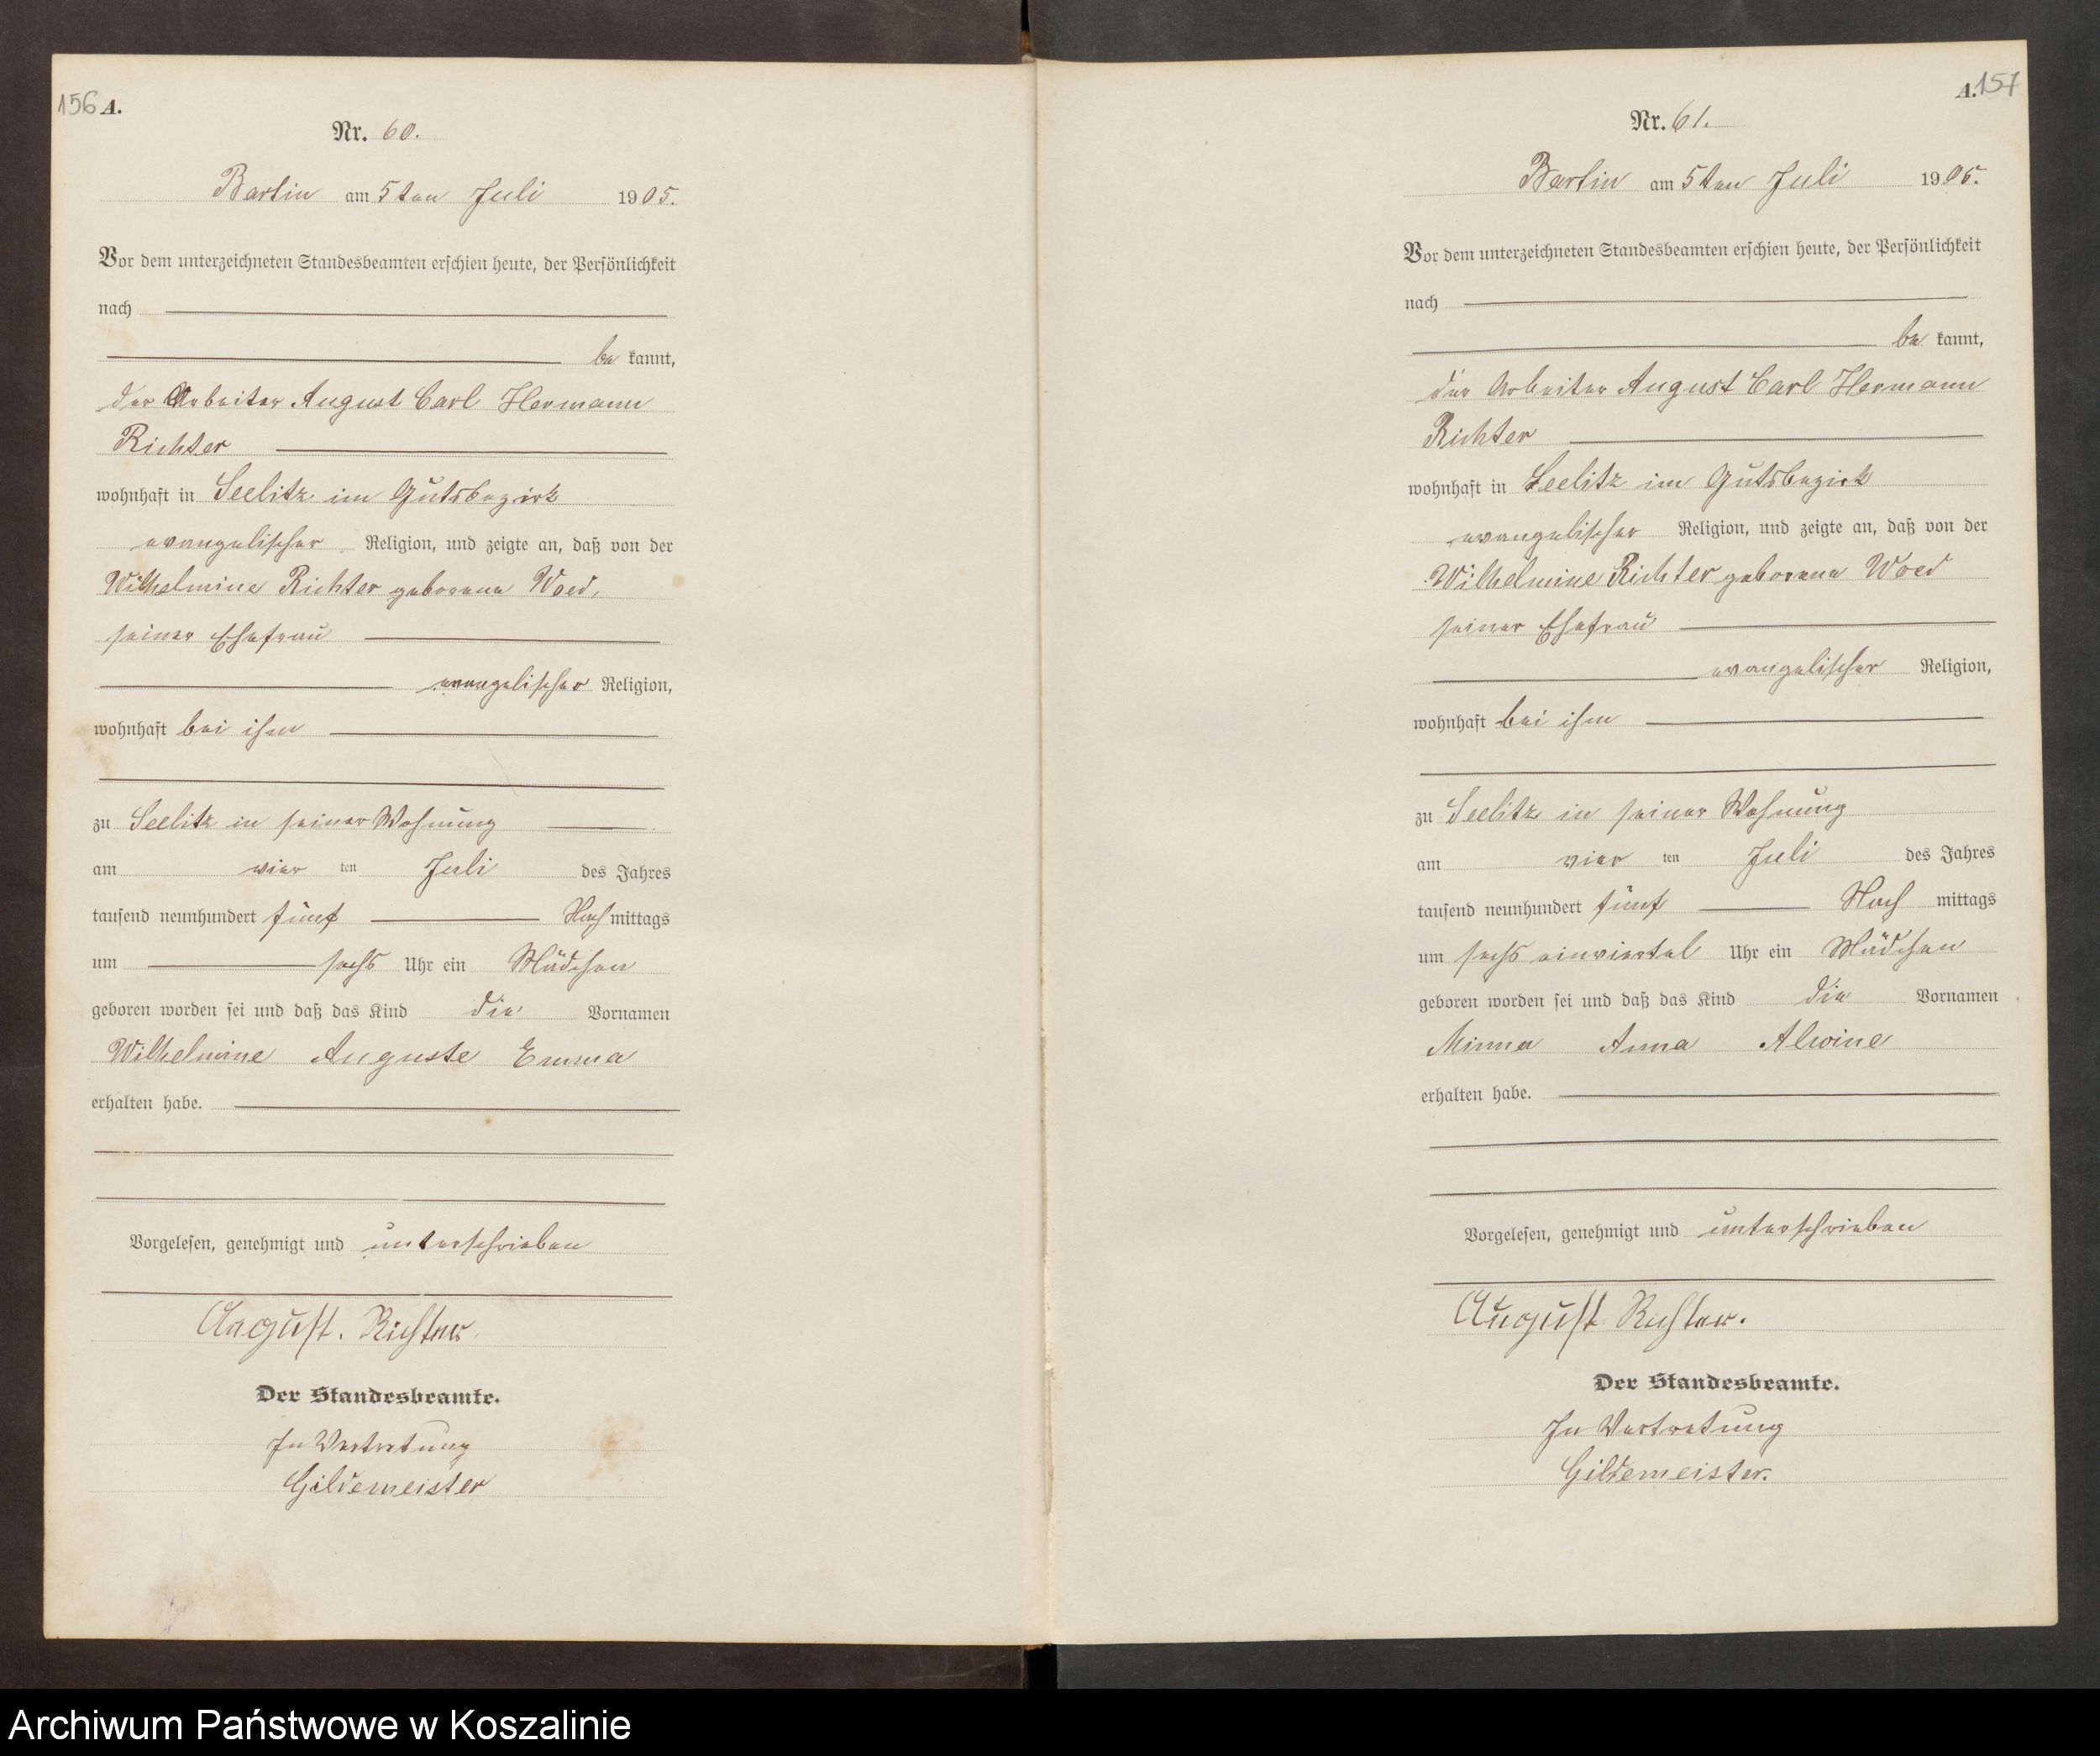 156 A.
Nr. 60.
Bartin am 5ten Juli 1905.
Vor dem unterzeichneten Standesbeamten erschien heute, der Persönlichkeit
nach
be kannt,
der Arbeiter August Carl Hermann
Richter
wohnhaft in Seelitz im Gutsbezirk
evangelischer Religion, und zeigte an, daß von der
Wilhelmine Richter geborene Woed,
seiner Ehefrau
evangelischer Religion,
wohnhaft bei ihm
zu Seelitz in seiner Wohnung
am vier ten Juli des Jahres
tausend neunhundert fünf Nach mittags
um sechs Uhr ein Mädchen
geboren worden sei und daß das Kind die Vornamen
Wilhelmine Auguste Emma
erhalten habe.
Vorgelesen, genehmigt und unterschrieben
August. Richter
Der Standesbeamte.
In Vertretung
Gildemeister
A. 157
Nr. 61.
Bartin am 5ten Juli 1905.
Vor dem unterzeichneten Standesbeamten erschien heute, der Persönlichkeit
nach
be kannt,
der Arbeiter August Carl Hermann
Richter
wohnhaft in Seelitz im Gutsbezirk
evangelischer Religion, und zeigte an, daß von der
Wilhelmine Richter geborene Woed
seiner Ehefrau
evangelischer Religion,
wohnhaft bei ihm
zu Seelitz in seiner Wohnung
am vier ten Juli des Jahres
tausend neunhundert fünf Nach mittags
um sechs einviertel Uhr ein Mädchen
geboren worden sei und daß das Kind die Vornamen
Minna Anna Alwine
erhalten habe.
Vorgelesen, genehmigt und unterschrieben
August Richter.
Der Standesbeamte.
In Vertretung
Gildemeister.
Archiwum Państwowe w Koszalinie